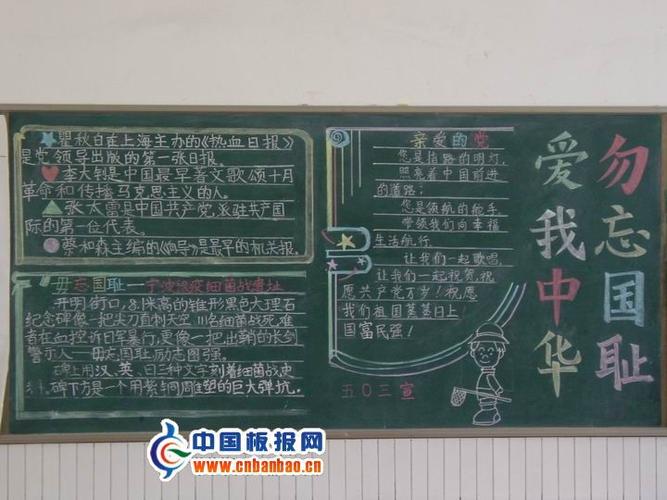 瞿秋白在上海主办的《热血日报》
是党领导出版的第一张日报。
李大钊是中国最早著文歌颂十月
革命和传播马克思主义的人。
张太雷是中国共产党派驻共产国
际的第一位代表。
蔡和森主编的《响导》是最早的机关报。
毋忘国耻——宁波鼠疫细菌战遗址
开明街口,8.1米高的锥形黑色大理石
纪念碑像一把尖刀直刺天空,111名细菌战死难
者在血控诉日军暴行,更像一把出鞘的长剑
警示人——毋忘国耻,励志图强。
碑上用汉、英、日三种文字刻着细菌战史
料,碑下方是一个用紫铜雕塑的巨大弹坑。
亲爱的党
您是指路的明灯,
照亮着中国前进
的道路;
您是领航的舵手,
带领我们向幸福
生活航行。
让我们一起歌唱,
让我们一起祝贺,祝
愿共产党万岁!祝愿
我们祖国蒸蒸日上!
国富民强!
五〇三宣
勿忘国耻
爱我中华
中国板报网
www.cnbanbao.cn